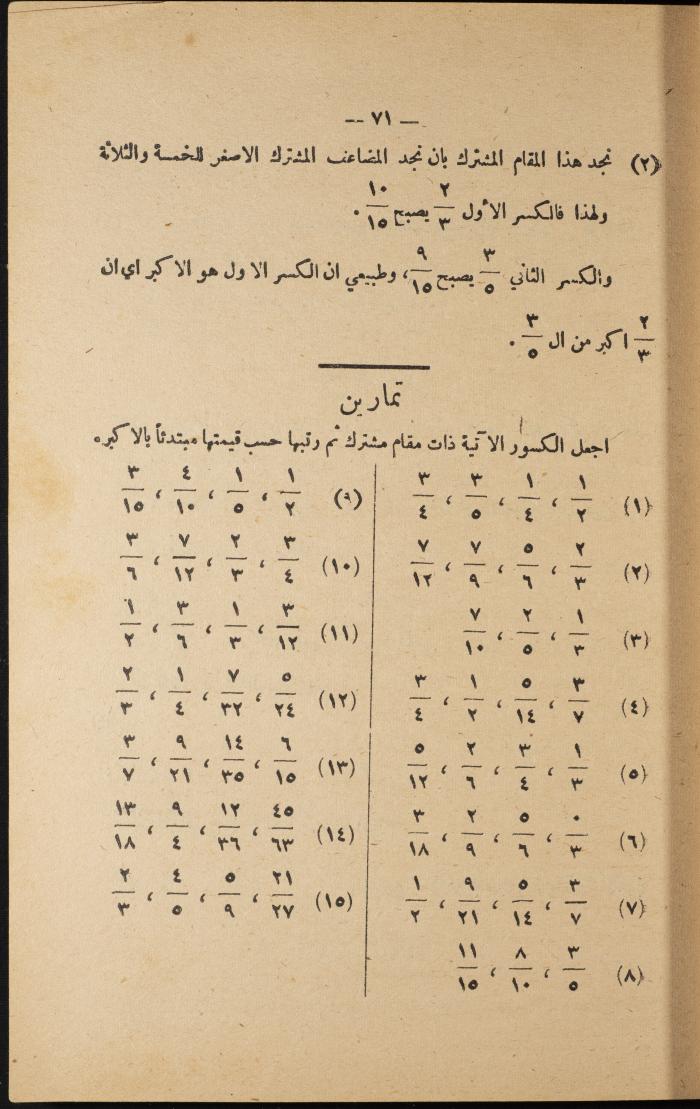 — ٧١ —
(٢) نجد هذا المقام المشترك بان نجد المضاعف المشترك الاصغر للخمسة والثلاثة
ولهذا فالكسر الأول ٢/٣ يصبح ١٠/١٥ .
والكسر الثاني ٣/٥ يصبح ٩/١٥ ، وطبيعي ان الكسر الاول هو الاكبر اي ان
٢/٣ اكبر من ال ٣/٥ .
تمارين
اجعل الكسور الآتية ذات مقام مشترك ثم رتبها حسب قيمتها مبتدئاً بالاكبر.
(١) ١/٢ ، ١/٤ ، ٣/٥ ، ٣/٤
(٢) ٢/٣ ، ٥/٦ ، ٧/٩ ، ٧/١٢
(٣) ١/٣ ، ٢/٥ ، ٧/١٠
(٤) ٣/٧ ، ٥/١٤ ، ١/٢ ، ٣/٤
(٥) ١/٣ ، ٣/٤ ، ٢/٦ ، ٥/١٢
(٦) ٠/٣ ، ٥/٦ ، ٢/٩ ، ٣/١٨
(٧) ٣/٧ ، ٥/١٤ ، ٩/٢١ ، ١/٢
(٨) ٣/٥ ، ٨/١٠ ، ١١/١٥
(٩) ١/٢ ، ١/٥ ، ٤/١٠ ، ٣/١٥
(١٠) ٣/٤ ، ٢/٣ ، ٧/١٢ ، ٣/٦
(١١) ٣/١٢ ، ١/٣ ، ٣/٦ ، ١/٢
(١٢) ٥/٢٤ ، ٧/٣٢ ، ١/٤ ، ٢/٣
(١٣) ٦/١٥ ، ١٤/٣٥ ، ٩/٢١ ، ٣/٧
(١٤) ٤٥/٦٣ ، ١٢/٣٦ ، ٩/٤ ، ١٣/١٨
(١٥) ٢١/٢٧ ، ٥/٩ ، ٤/٥ ، ٢/٣